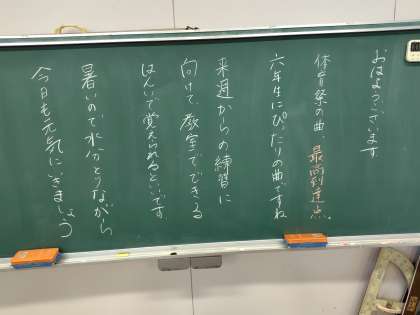 おはようございます
体育祭の曲、最高到達点。
六年生にぴったりの曲ですね
来週からの練習に
向けて、教室でできる
はんいで覚えられるといいです
暑いので水分とりながら
今日も元気にいきましょう